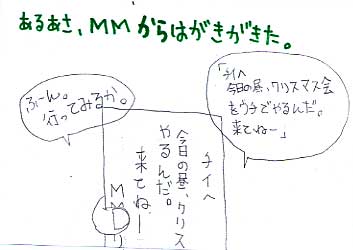 あるあさ、MMからはがきがきた。
「チイへ
今日の昼、クリスマス会
をウチでやるんだ。
来てねー」
ふーん。
行ってみるか。
チイへ
今日の昼、クリス
やるんだ。
来てねー
MMより